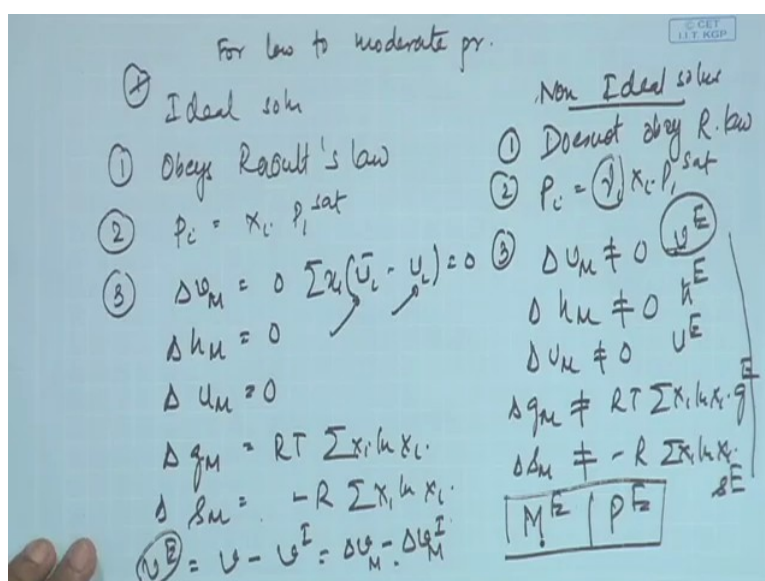 For low to moderate pr.
© CET
I.I.T. KGP
Ideal soln
① Obeys Raoult's law
② Pi = xi Pi^sat
③ ΔvM = 0 Σxi(v̄i - vi) = 0
ΔhM = 0
ΔuM = 0
ΔgM = RT Σxi ln xi.
ΔsM = -R Σxi ln xi.
v^E = v - v^I = ΔvM - ΔvM^I
Non Ideal solns
① Doesnot obey R. law
② Pi = γi xi Pi^sat
③ ΔvM ≠ 0 v^E
ΔhM ≠ 0 h^E
ΔuM ≠ 0 u^E
ΔgM ≠ RT Σxi ln xi. g^E
ΔsM ≠ -R Σxi ln xi. s^E
M^E | P^E